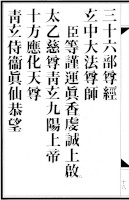 三十六部尊經
玄中大法尊師
臣等謹運眞香虔誠上啟
太乙慈尊青玄九陽上帝
十方應化天尊
青玄侍衞眞仙恭望